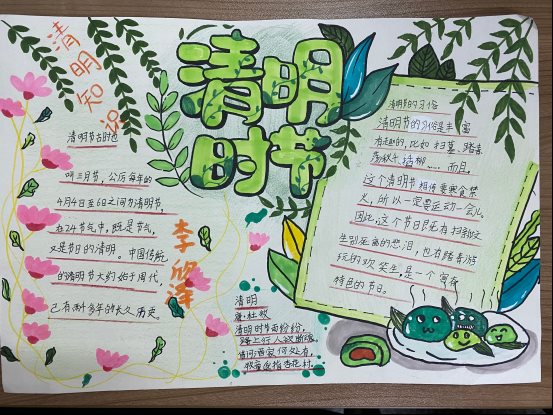 清明知识
清明时节
清明节古时也
叫三月节，公历每年的
4月4日至6日之间为清明节，
在24节气中，既是节气，
又是节日的清明。中国传统
的清明节大约始于周代，
已有两千多年的长久历史。
李欣泽
清明
唐·杜牧
清明时节雨纷纷，
路上行人欲断魂。
借问酒家何处有，
牧童遥指杏花村。
清明节的习俗
清明节的习俗是丰富
有趣的，比如扫墓、踏青
荡秋千、插柳……而且，
这个清明节相传要寒食禁
火，所以一定要运动一会儿。
因此，这个节日既有扫新坟
生别死离的悲泪，也有踏青游
玩的欢笑生，是一个富有
特色的节日。